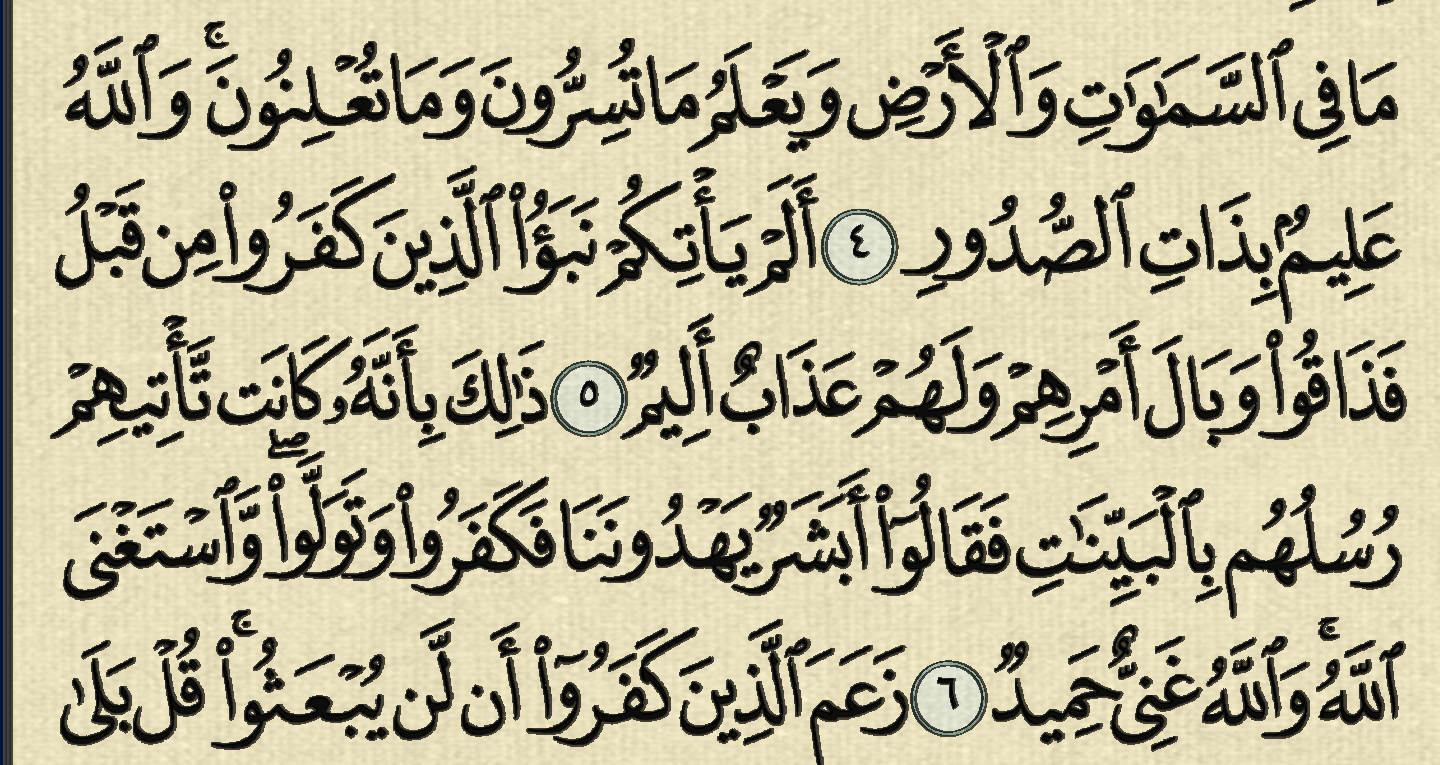 مَا فِى ٱلسَّمَـٰوَٰتِ وَٱلْأَرْضِ وَيَعْلَمُ مَا تُسِرُّونَ وَمَا تُعْلِنُونَ ۚ وَٱللَّهُ
عَلِيمٌۢ بِذَاتِ ٱلصُّدُورِ ٤ أَلَمْ يَأْتِكُمْ نَبَؤُا۟ ٱلَّذِينَ كَفَرُوا۟ مِن قَبْلُ
فَذَاقُوا۟ وَبَالَ أَمْرِهِمْ وَلَهُمْ عَذَابٌ أَلِيمٌ ٥ ذَٰلِكَ بِأَنَّهُۥ كَانَت تَّأْتِيهِمْ
رُسُلُهُم بِٱلْبَيِّنَـٰتِ فَقَالُوٓا۟ أَبَشَرٌ يَهْدُونَنَا فَكَفَرُوا۟ وَتَوَلَّوا۟ ۖ وَّٱسْتَغْنَى
ٱللَّهُ ۚ وَٱللَّهُ غَنِىٌّ حَمِيدٌ ٦ زَعَمَ ٱلَّذِينَ كَفَرُوٓا۟ أَن لَّن يُبْعَثُوا۟ ۚ قُلْ بَلَىٰ